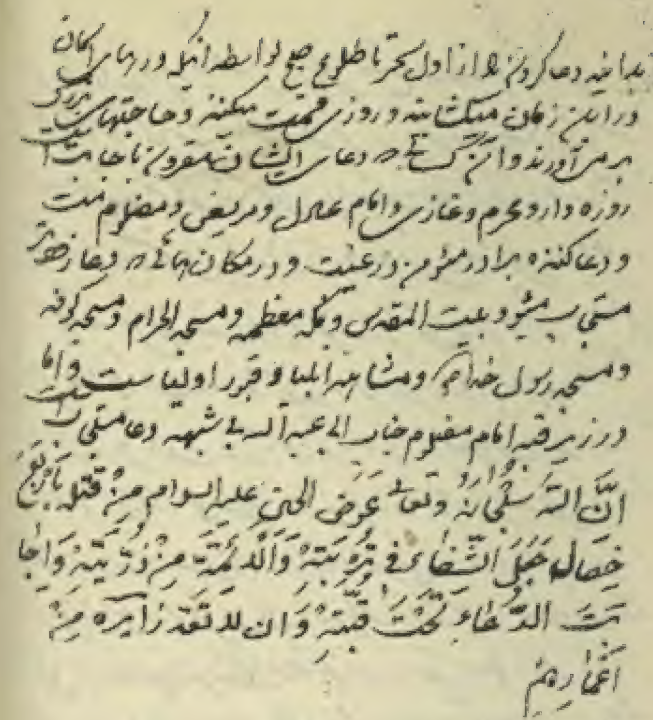 بدانید دعا کردن را از اول سحر تا طلوع صبح بواسطه آنکه درهای آسمان
در این زمان میگشایند و روزی قسمت میکنند و حاجتهای بزرگ
بر می آورند و آن کسانیکه دعای ایشان مقرون باجابت است
روزه دار و محرم و غازی و امام عادل و مریض و مظلوم است
و دعا کننده برادر مؤمن در غیبت و در مکان هائی که دعا زودتر
مستجاب میشود بیت المقدس و مکه معظمه و مسجد الحرام و مسجد کوفه
و مسجد رسول خدا و مشاهد انبیا و قبور اولیا است و اما
در زیر قبه امام مظلوم جناب ابی عبد اله بی شبهه دعا مستجاب است
اِنَّ اللهَ سُبْحٰانَهُ وَتَعٰالی عَوَضَ الحسین علیه السلام مِنْ قَتْلِهِ بِاَرْبَعِ
خِصٰالٍ جَعَلَ الشِّفٰاءَ فی تُرْبَتِهِ وَالْاَئِمَّةَ مِنْ ذُرِّیَّتِهِ وَاِجٰا
بَتَ الدُّعٰاءِ تَحْتَ قُبَّتِهِ وَاَن لا تُعَد زٰایِرِه مِنْ
اَعْمٰارِهِمْ